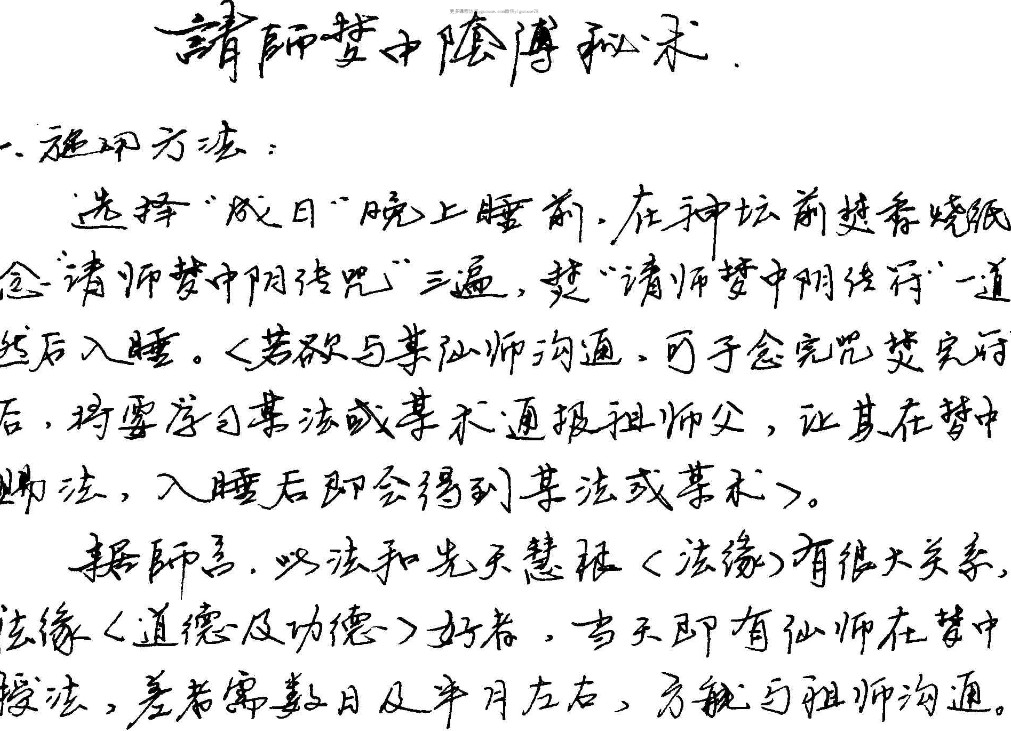 請師梦中陰傳秘术.
一、施用方法：
选择“成日“晚上睡前，在神坛前焚香烧纸
念“请师梦中阴传咒”三遍，焚“请师梦中阴传符”一道
然后入睡。<若欲与某仙师沟通，可于念完咒焚完符
后，将要学习某法或某术通报祖师父，让其在梦中
赐法，入睡后即会得到某法或某术>。
据師言，此法和先天慧根<法缘>有很大关系，
法缘<道德及功德>好者，当天即有仙师在梦中
授法，差者需数日及半月左右，方能与祖师沟通。